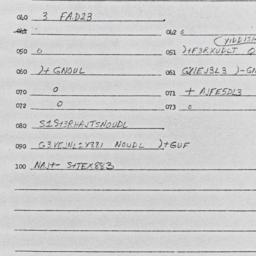 040 3 FAD23
042 0
(YIDDISH
050 0
051 )+F3RXUDLT
060 )+ GNOUL
061 GXIEJ3L3 )-GN
070 0
071 + AJFE5DL3
072 0
073 0
080 S1S+3RHAJTSNOUDL
090 G3VEJNL2Y88I NOUDL )+GUF
100 NAJ+- S+TEX883